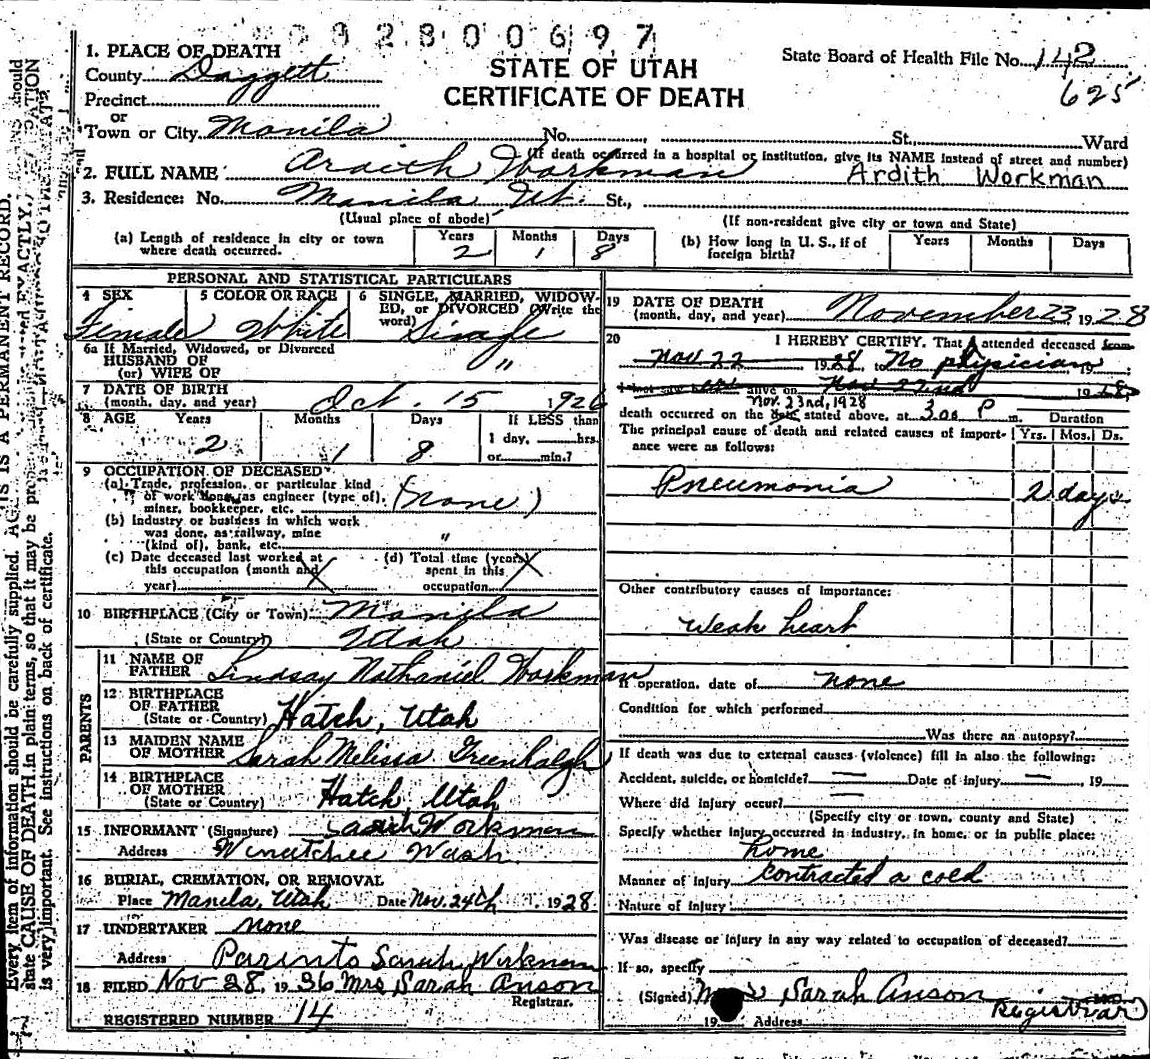 0 9 2 8 0 0 6 9 7
1. PLACE OF DEATH
County Daggett
STATE OF UTAH
State Board of Health File No. 142
Precinct
CERTIFICATE OF DEATH
625
or
Town or City Manila No. , St., Ward
(If death occurred in a hospital or institution, give its NAME instead of street and number)
2. FULL NAME Ardith Workman Ardith Workman
3. Residence: No. Manila Ut. St.,
(Usual place of abode) (If non-resident give city or town and State)
(a) Length of residence in city or town where death occurred. Years 2 Months 1 Days 8
(b) How long in U. S., if of foreign birth? Years Months Days
PERSONAL AND STATISTICAL PARTICULARS
4 SEX Female
5 COLOR OR RACE White
6 SINGLE, MARRIED, WIDOW-
ED, or DIVORCED (Write the
word) Single
6a If Married, Widowed, or Divorced
HUSBAND OF
(or) WIFE OF "
7 DATE OF BIRTH
(month, day, and year) Oct. 15 1926
8 AGE Years 2 Months 1 Days 8 If LESS than
1 day, hrs.
or min.?
9 OCCUPATION OF DECEASED
(a) Trade, profession, or particular kind
of work done, as engineer (type of),
miner, bookkeeper, etc. (none)
(b) Industry or business in which work
was done, as railway, mine
(kind of), bank, etc. "
(c) Date deceased last worked at
this occupation (month and
year)
(d) Total time (years)
spent in this
occupation
10 BIRTHPLACE (City or Town) Manila
(State or Country) Utah
PARENTS
11 NAME OF
FATHER Lindsay Nathaniel Workman
12 BIRTHPLACE
OF FATHER
(State or Country) Hatch, Utah
13 MAIDEN NAME
OF MOTHER Sarah Melissa Greenhalgh
14 BIRTHPLACE
OF MOTHER
(State or Country) Hatch, Utah
15 INFORMANT (Signature) Sarah Workman
Address Winatchee Wash.
16 BURIAL, CREMATION, OR REMOVAL
Place Manila, Utah Date Nov. 24th 1928
17 UNDERTAKER none
Address Parints Sarah Wirkman
18 FILED Nov 28, 1936 Mrs Sarah Anson
Registrar.
REGISTERED NUMBER 14
19 DATE OF DEATH
(month, day, and year) November 23, 1928
20 I HEREBY CERTIFY, That I attended deceased from
Nov 22 1928, to No physician 19 ;
I last saw her alive on Nov 22nd 1928,
Nov. 23rd, 1928
death occurred on the date stated above, at 3.00 P m. Duration
The principal cause of death and related causes of import-
ance were as follows: Yrs. Mos. Ds.
Pneumonia 2 days
Other contributory causes of importance:
Weak heart
If operation, date of none
Condition for which performed
Was there an autopsy?
If death was due to external causes (violence) fill in also the following:
Accident, suicide, or homicide? — Date of injury — 19
Where did injury occur? —
(Specify city or town, county and State)
Specify whether injury occurred in industry, in home, or in public place:
home
Manner of injury contracted a cold
Nature of injury
Was disease or injury in any way related to occupation of deceased?
If so, specify
(Signed) Sarah Anson
Registrar
19 Address
Every item of information should be carefully supplied.
state CAUSE OF DEATH in plain terms, so that it may be
is very important. See instructions on back of certificate.
IS A PERMANENT RECORD.
EXACTLY.